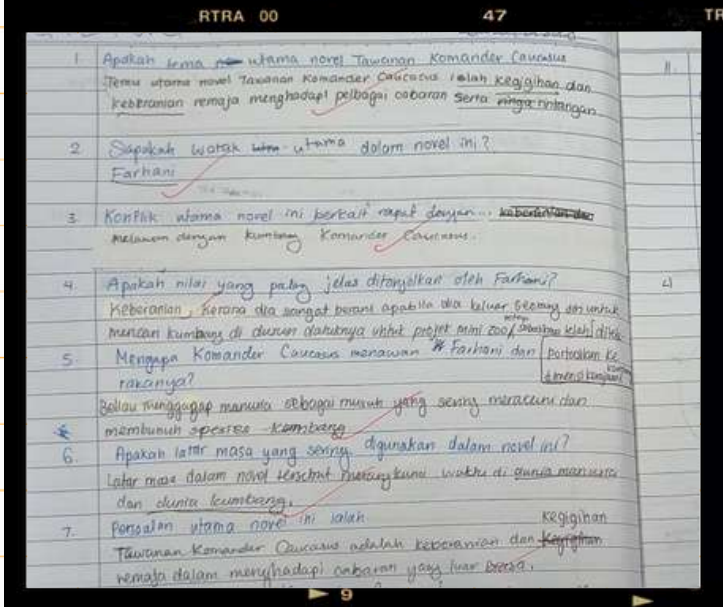 RTRA 00 47 TR
1 Apakah tema utama novel Tawanan Komander Caucasus
Tema utama novel Tawanan Komander Caucasus ialah kegigihan dan
keberanian remaja menghadapi pelbagai cabaran serta
11.
2 Siapakah watak utama dalam novel ini?
Farhani
3. Konflik utama novel ini berkait rapat dengan...
melawan dengan kumbang Komander Caucasus.
4. Apakah nilai yang paling jelas ditonjolkan oleh Farhani?
Keberanian, kerana dia sangat berani apabila dia keluar seorang diri untuk
mencari kumbang di dusun datuknya untuk projek mini zoo
portalkan ke
5 Mengapa Komander Caucasus menawan Farhani dan
rakanya?
Beliau menggagap manusia sebagai musuh yang sering meracuni dan
membunuh spesies kumbang
6. Apakah latar masa yang sering digunakan dalam novel ini?
Latar masa dalam novel tersebut waktu di dunia manusia
dan dunia kumbang.
7. Persoalan utama novel ini ialah kegigihan
Tawanan Komander Caucasus adalah keberanian dan
remaja dalam menghadapi cabaran yang luar
9